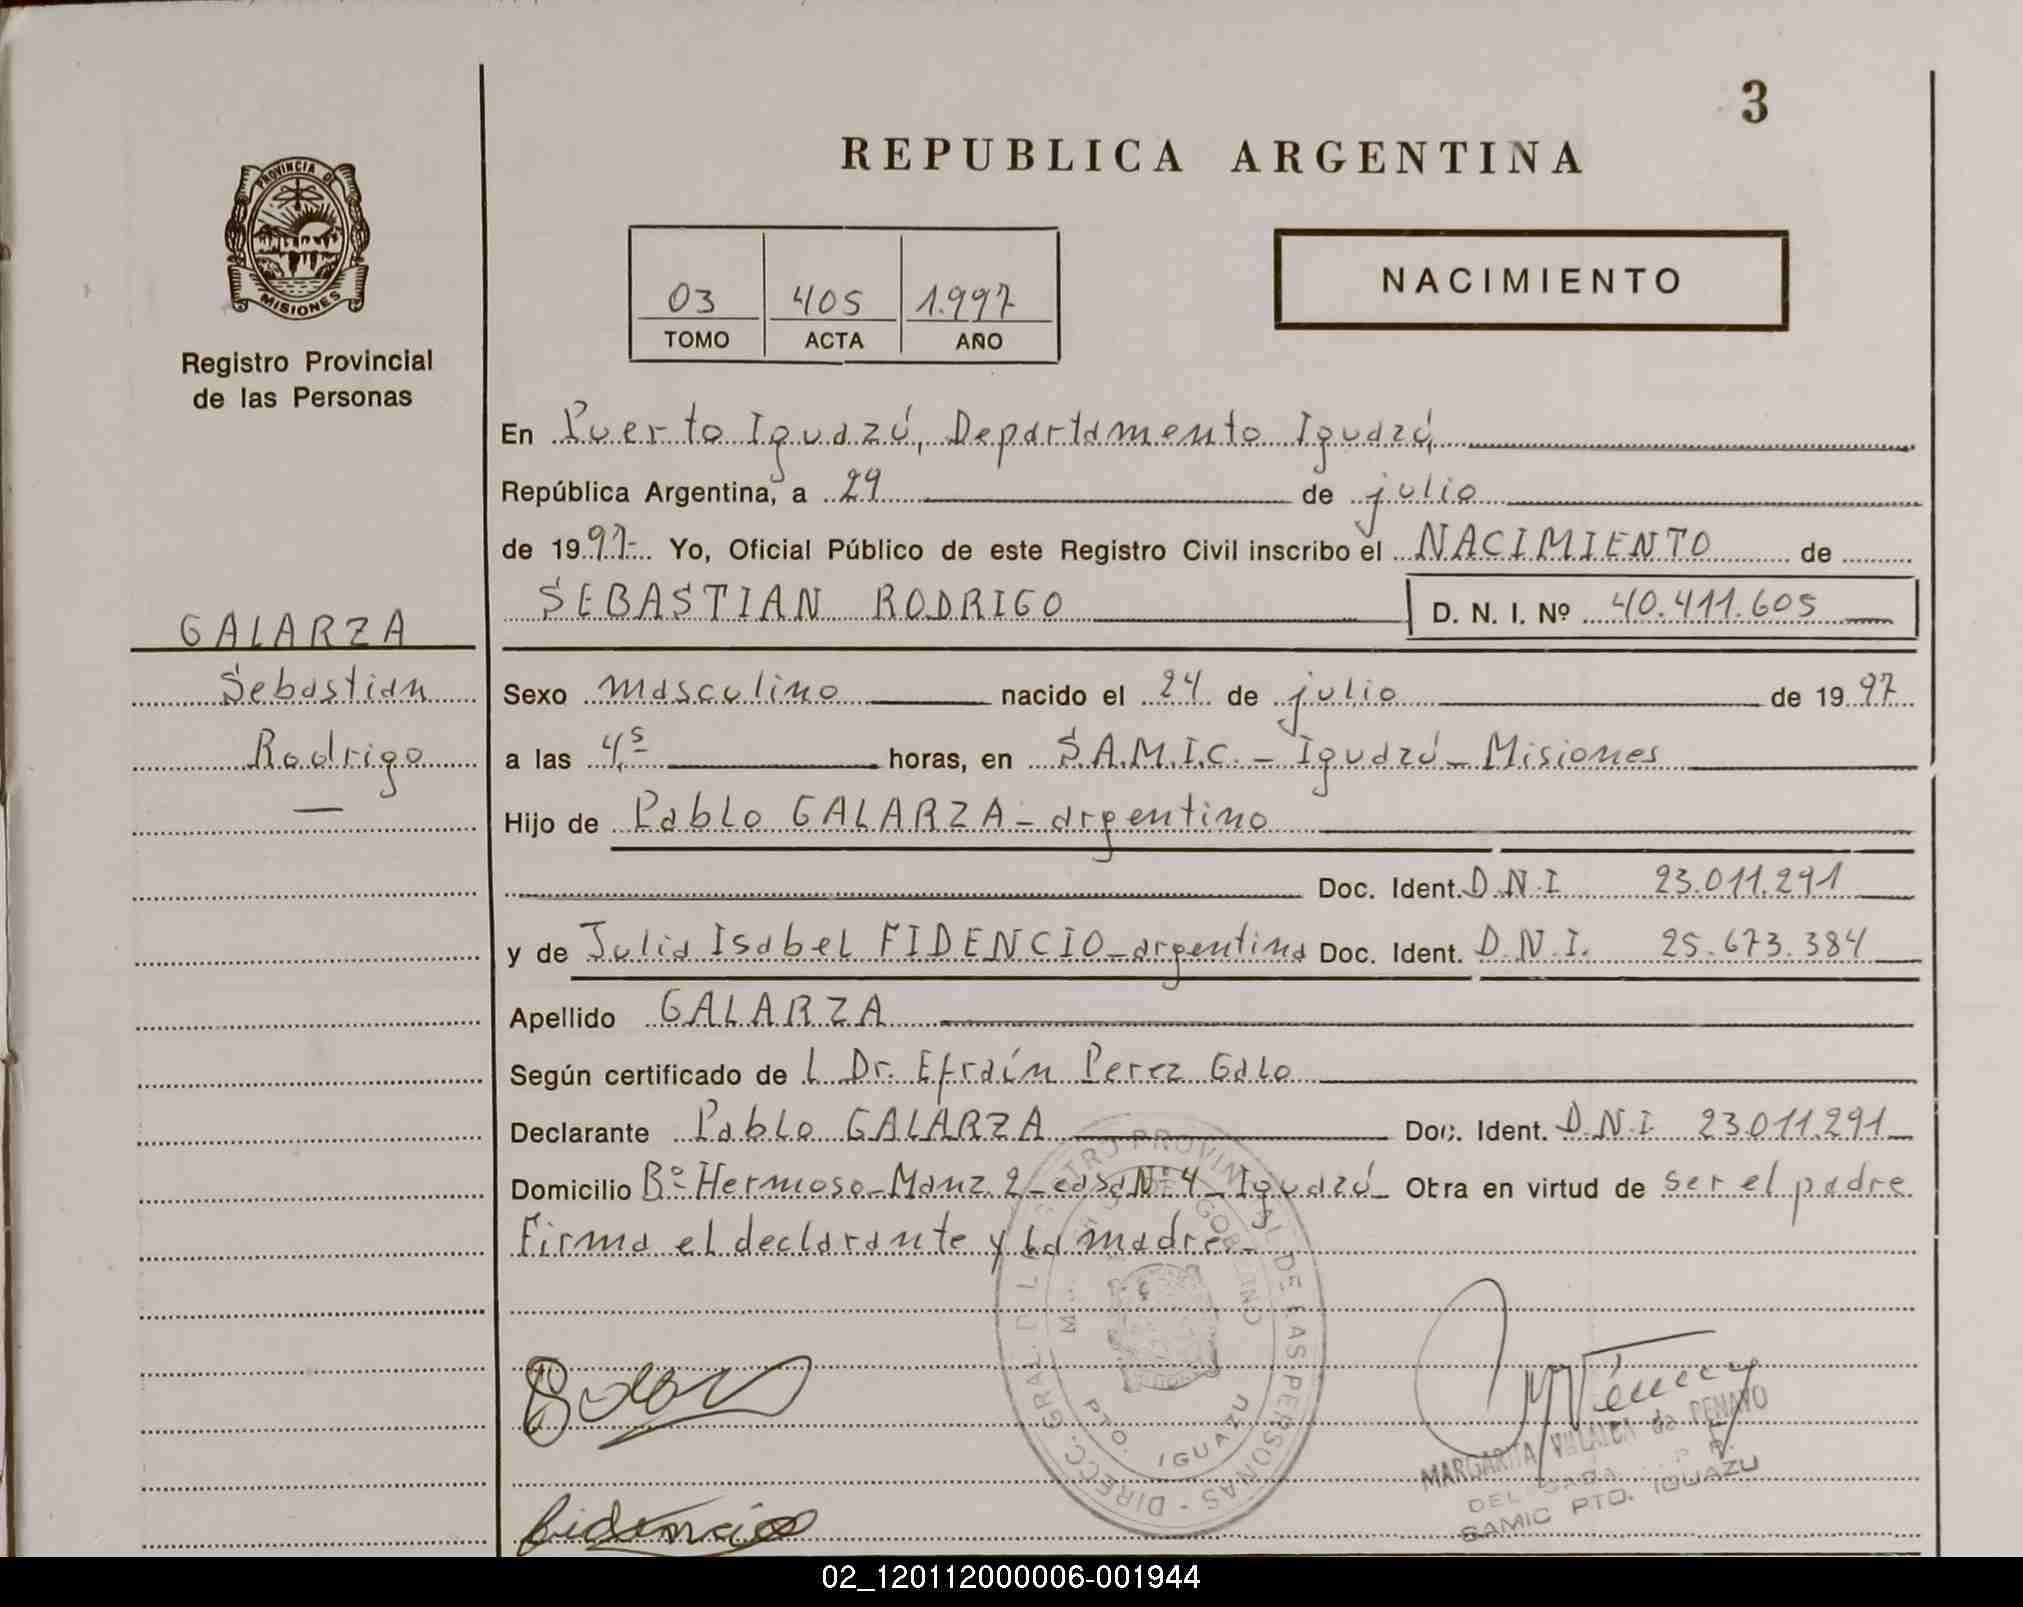 3
REPUBLICA ARGENTINA
PROVINCIA DE
MISIONES
Registro Provincial
de las Personas
03 405 1.997
TOMO ACTA AÑO
NACIMIENTO
En Puerto Iguazú, Departamento Iguazú,
República Argentina, a 29 de julio
de 1997- Yo, Oficial Público de este Registro Civil inscribo el NACIMIENTO de
SEBASTIAN RODRIGO D. N. I. Nº 40.411.605
GALARZA
Sebastian
Rodrigo
—
Sexo masculino nacido el 24 de julio de 1997
a las 4,5 horas, en S.A.M.I.C. - Iguazú - Misiones
Hijo de Pablo GALARZA - argentino
Doc. Ident. D.N.I 23.011.291
y de Julia Isabel FIDENCIO - argentina Doc. Ident. D.N.I. 25.673.384
Apellido GALARZA
Según certificado de l Dr. Efraín Perez Galo
Declarante Pablo GALARZA Doc. Ident. D.N.I 23.011.291
Domicilio Bº Hermoso - Manz. 2 - casa Nº 4 - Iguazú - Obra en virtud de ser el padre
Firma el declarante y la madre -
DIRECC. GRAL. DEL REGISTRO PROVINCIAL DE LAS PERSONAS -
PTO. IGUAZU
Fidencio
MARGARITA de PENAYO
SAMIC PTO. IGUAZU
02_120112000006-001944